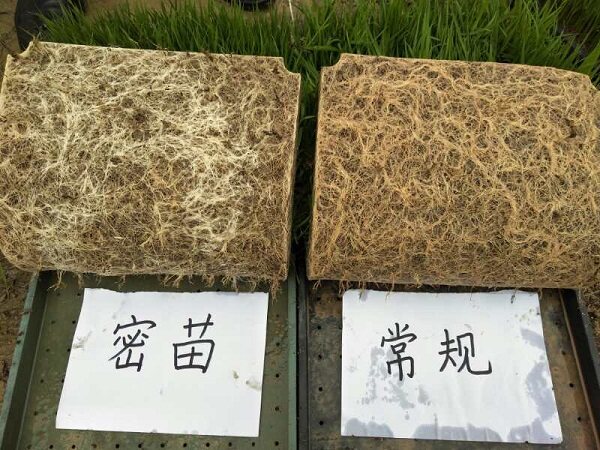 密苗
常规